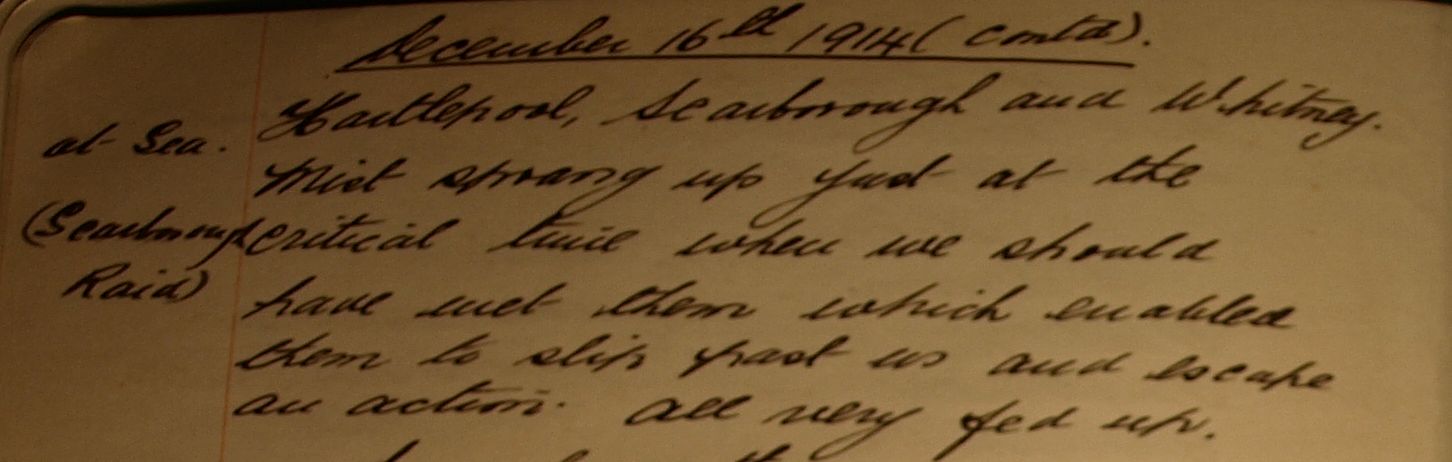 December 16th 1914 (Contd).
Hartlepool, Scarborough and Whitney.
at Sea.
Mist sprang up just at the
(Scarborough
critical time when we should
Raid)
have met them which enabled
them to slip past us and escape
an action. All very fed up.